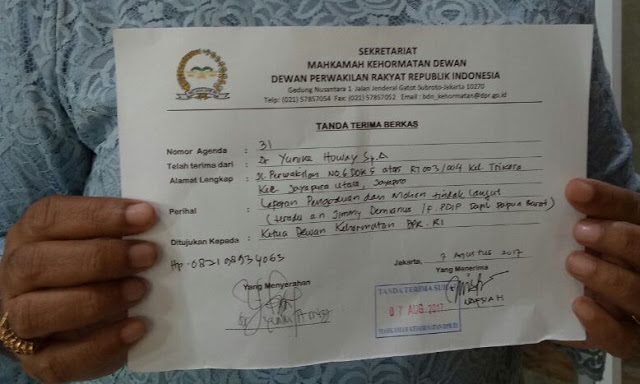 SEKRETARIAT
MAHKAMAH KEHORMATAN DEWAN
DEWAN PERWAKILAN RAKYAT REPUBLIK INDONESIA
Gedung Nusantara 1 Jalan Jenderal Gatot Subroto-Jakarta 10270
Telp: (021) 57857054 Fax: (021) 57857052 Email : bdn_kehormatan@dpr.go.id
TANDA TERIMA BERKAS
Nomor Agenda : 31
Telah terima dari : Dr
Alamat Lengkap : Jl. Perwakilan No. 6 DOK 5 atas RT 003/004 Kel Trikora
Kec Jayapura Utara, Jayapura
Perihal : Laporan Pengaduan dan Mohon tindak lanjut
(teradu a.n Jimmy Demianus /F PDIP Dapil Papua Barat)
Ditujukan Kepada : Ketua Dewan Kehormatan DPR. RI
Hp. 082198934063
Jakarta, 7 Agustus 2017
Yang Menyerahkan
Yang Menerima
TANDA TERIMA
07 AUG 2017
MAHKAMAH KEHORMATAN DPR RI